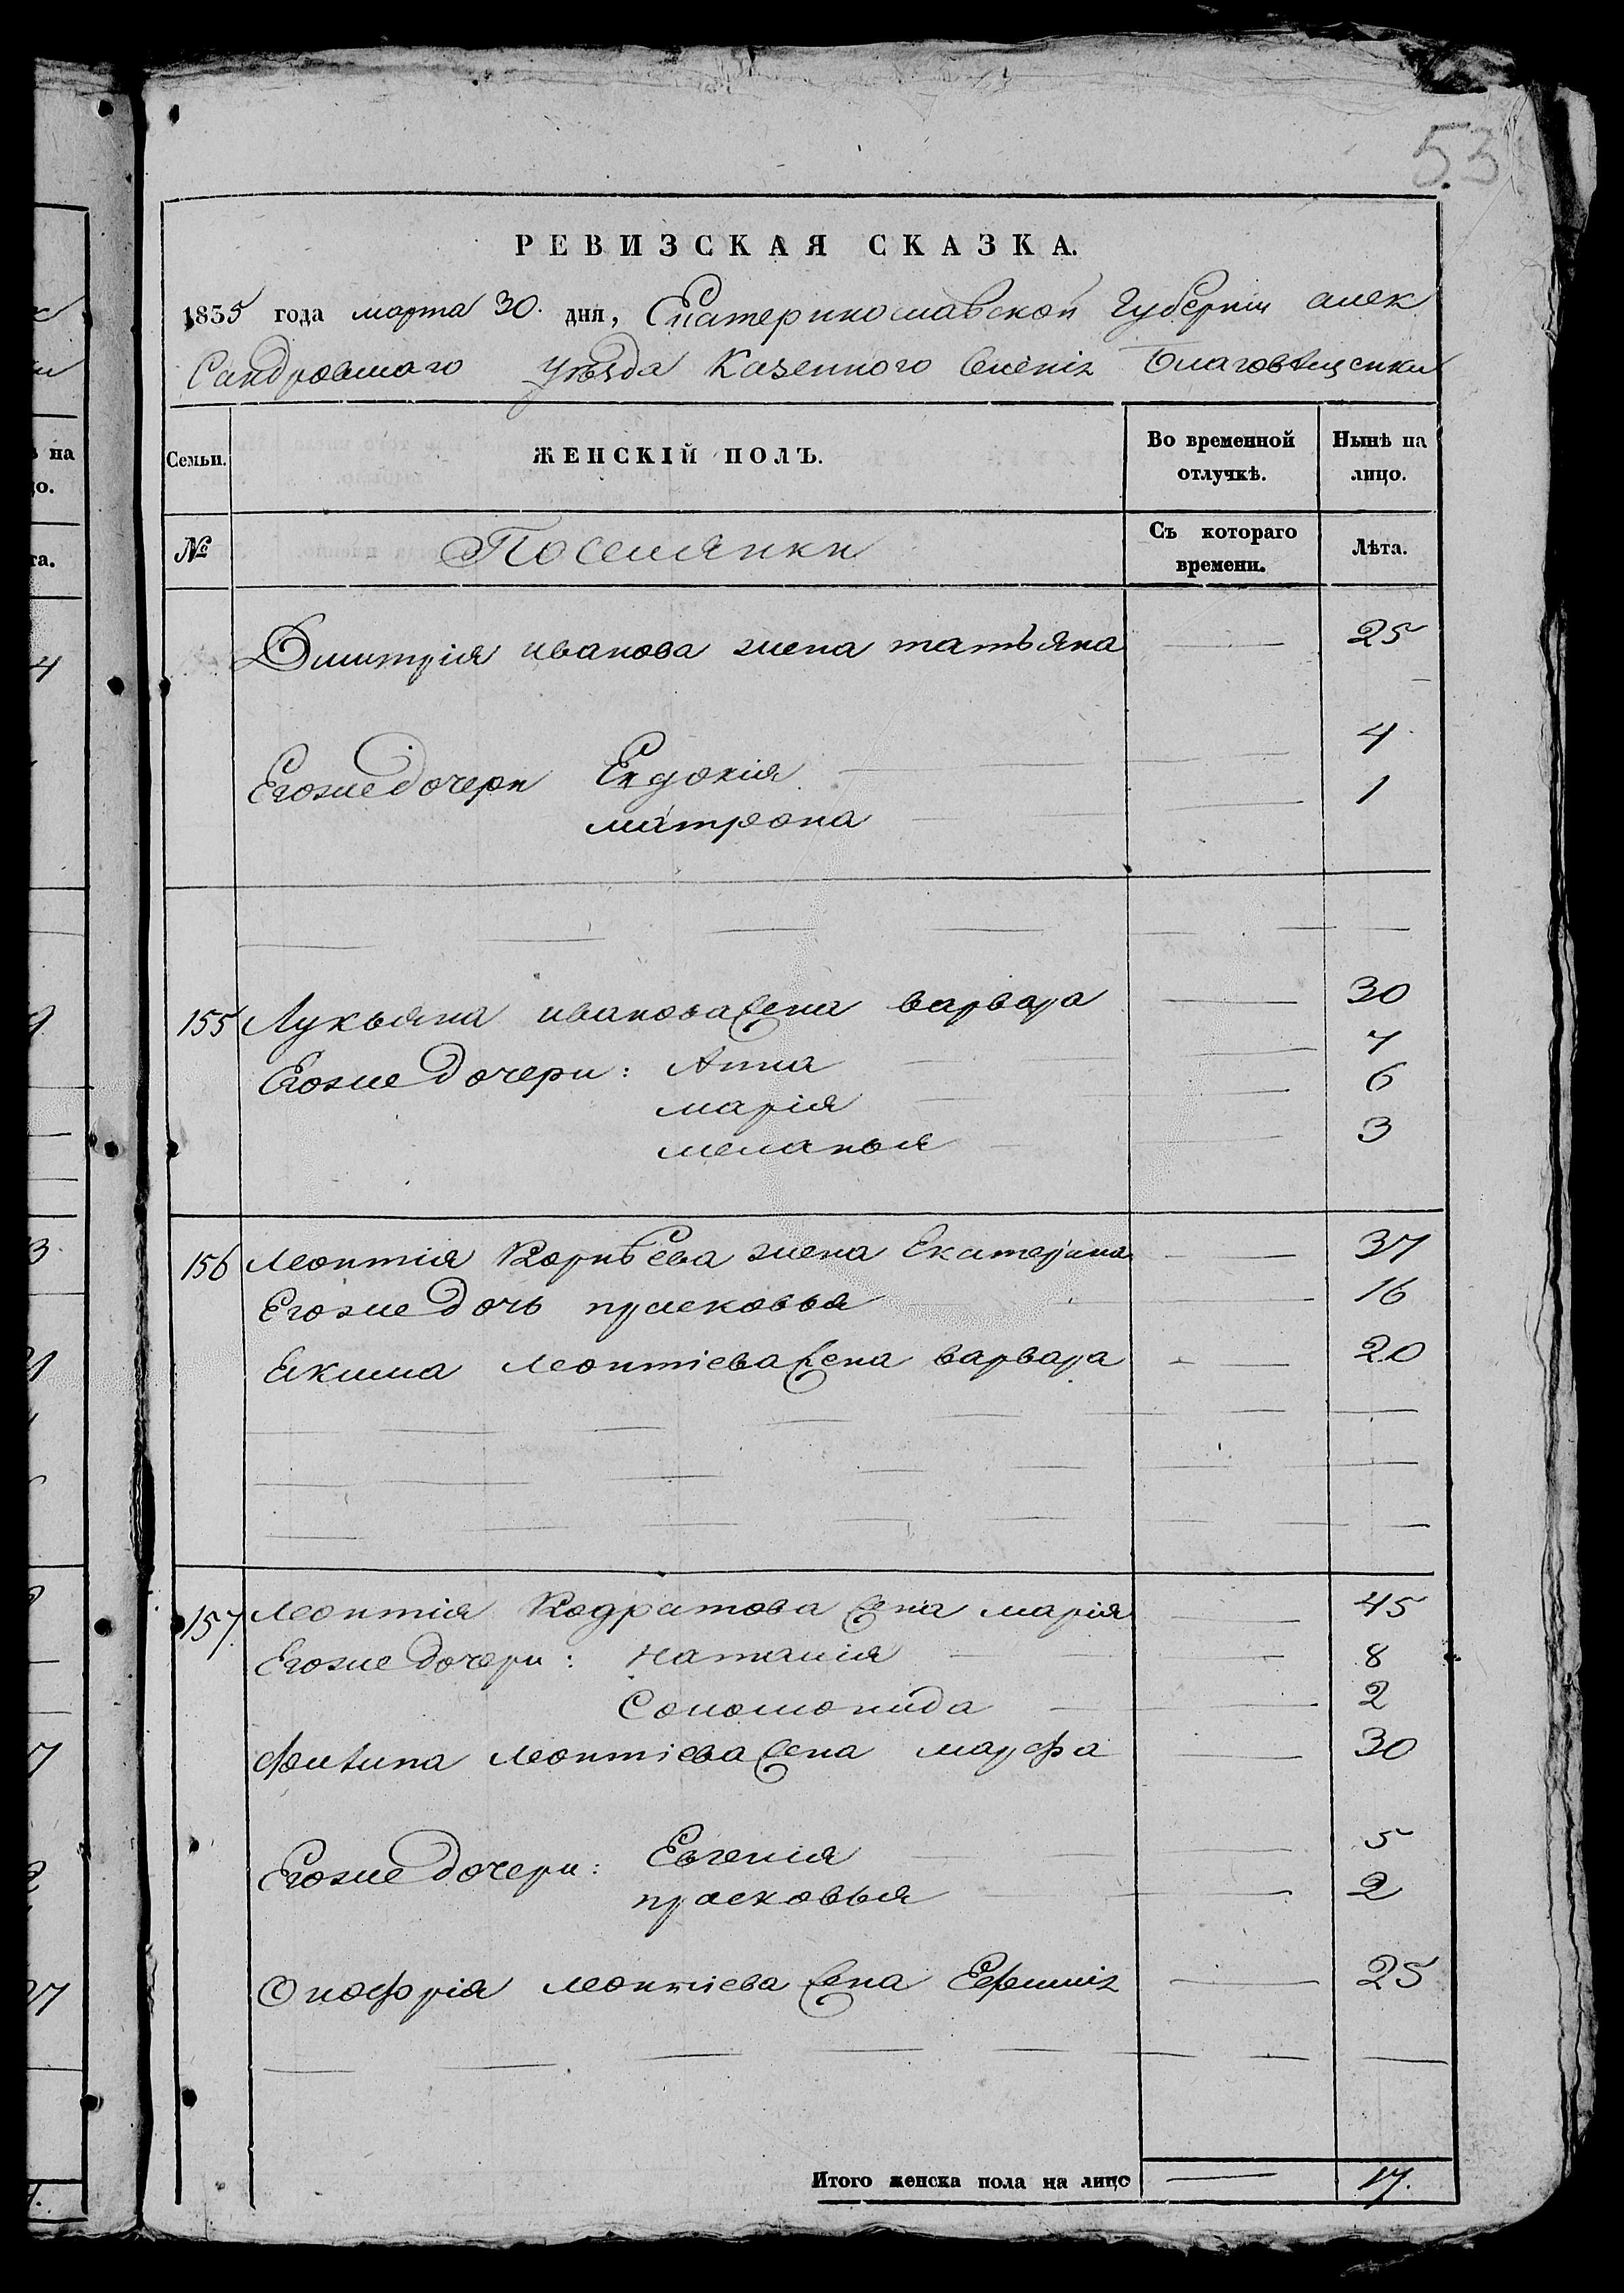 53
РЕВИЗСКАЯ СКАЗКА.
1835 года марта 30. дня, Екатеринославской Губерніи алек
Сандровского Уѣзда Казенного Сѣленія Благовѣщенки
Семьи.
ЖЕНСКІЙ ПОЛЪ.
Во временной отлучкѣ.
Нынѣ на лицо.
№
Поселянки
Съ котораго времени.
Лѣта.
Дмитрія иванова жена татьяна — 25
Егоже дочери Евдокія — 4
матрона — 1
155 Лукьяна иванова Жена варвара — 30
Егоже дочери: Анна — 7
марія — 6
меланья — 3
156 Леонтія Корнѣева жена Екатерина — 37
Егоже дочь прасковья — 16
Екима Леонтіева Жена варвара — 20
157. Леонтія Кодратова Жена марія — 45
Егоже дочери: Наталія — 8
Соломонида — 2
Леонтіева Жена марфа — 30
Егоже дочери: Евгенія — 5
прасковья — 2
Онофрія Леонтіева Жена Ефимія — 25
Итого женска пола на лицо — 17.